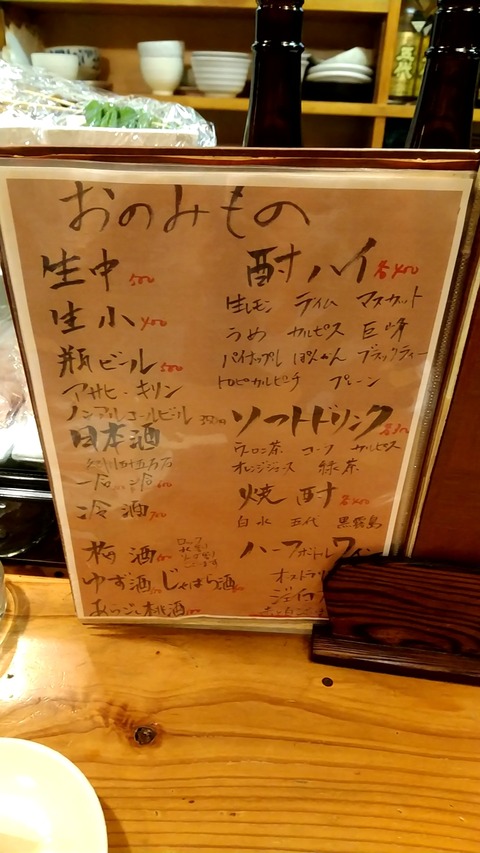 おのみもの
生中 500
生小 400
瓶ビール 500
アサヒ・キリン
ノンアルコールビール 350
日本酒
一合 600
冷酒 700
梅酒
ロック
水割
ソーダ割
ゆず酒 じゃばら酒
あらごし桃酒
酎ハイ 各400
生レモン ライム マスカット
うめ カルピス 巨峰
パイナップル ぽんかん ブラックティー
トロピカルピーチ プレーン
ソフトドリンク
ウーロン茶 コーラ カルピス
オレンジジュース 緑茶
焼酎 各400
白水 五代 黒霧島
ハーフボトルワイン
五代